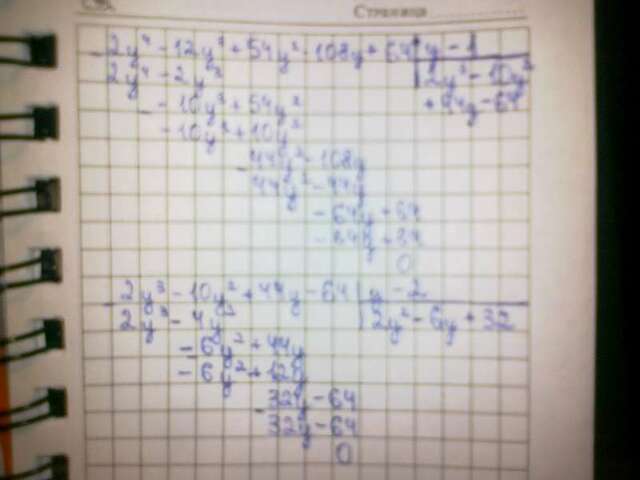 Страница
2y⁴ - 12y³ + 54y² - 108y + 64 | y - 1
2y⁴ - 2y³ | 2y³ - 10y²
- 10y³ + 54y² + 44y - 64
- 10y³ + 10y²
44y² - 108y
44y² - 44y
- 64y + 64
- 64y + 64
0
2y³ - 10y² + 44y - 64 | y - 2
2y³ - 4y² | 2y² - 6y + 32
- 6y² + 44y
- 6y² + 12y
32y - 64
32y - 64
0